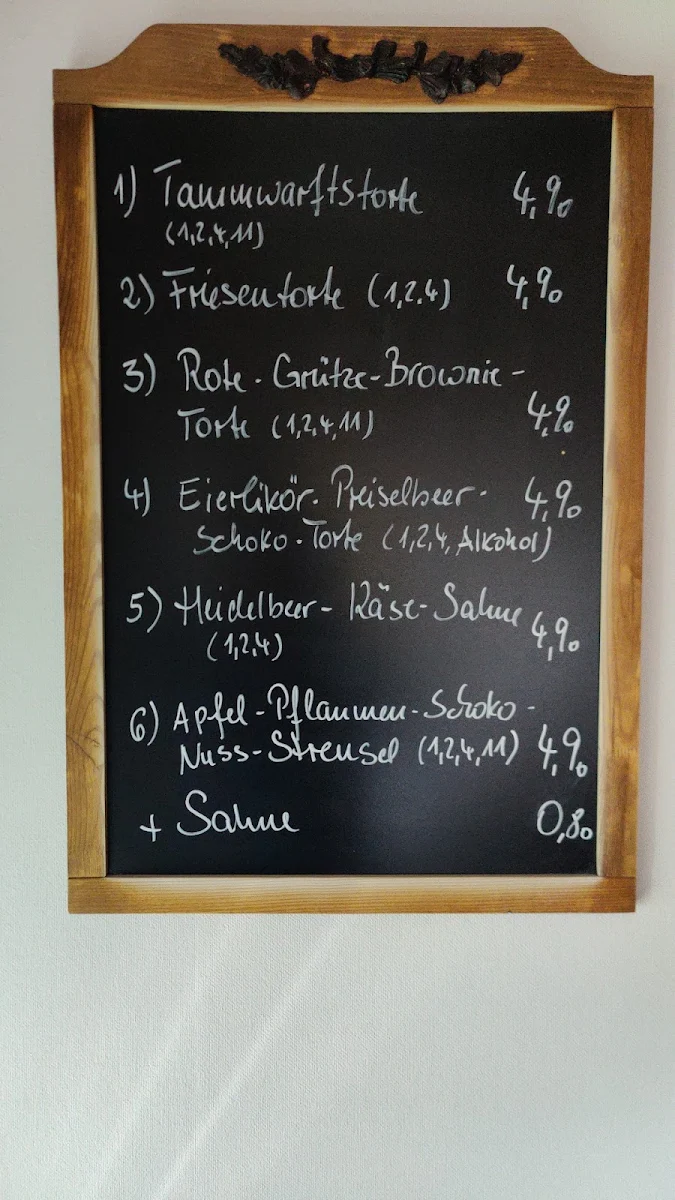 1) Tammwarftstorte 4,90
(1,2,4,11)
2) Friesentorte (1,2,4) 4,90
3) Rote-Grütze-Brownie-
Torte (1,2,4,11) 4,90
4) Eierlikör-Preiselbeer- 4,90
Schoko-Torte (1,2,4, Alkohol)
5) Heidelbeer-Käse-Sahne 4,90
(1,2,4)
6) Apfel-Pflaumen-Schoko-
Nuss-Streusel (1,2,4,11) 4,90
+ Sahne 0,80